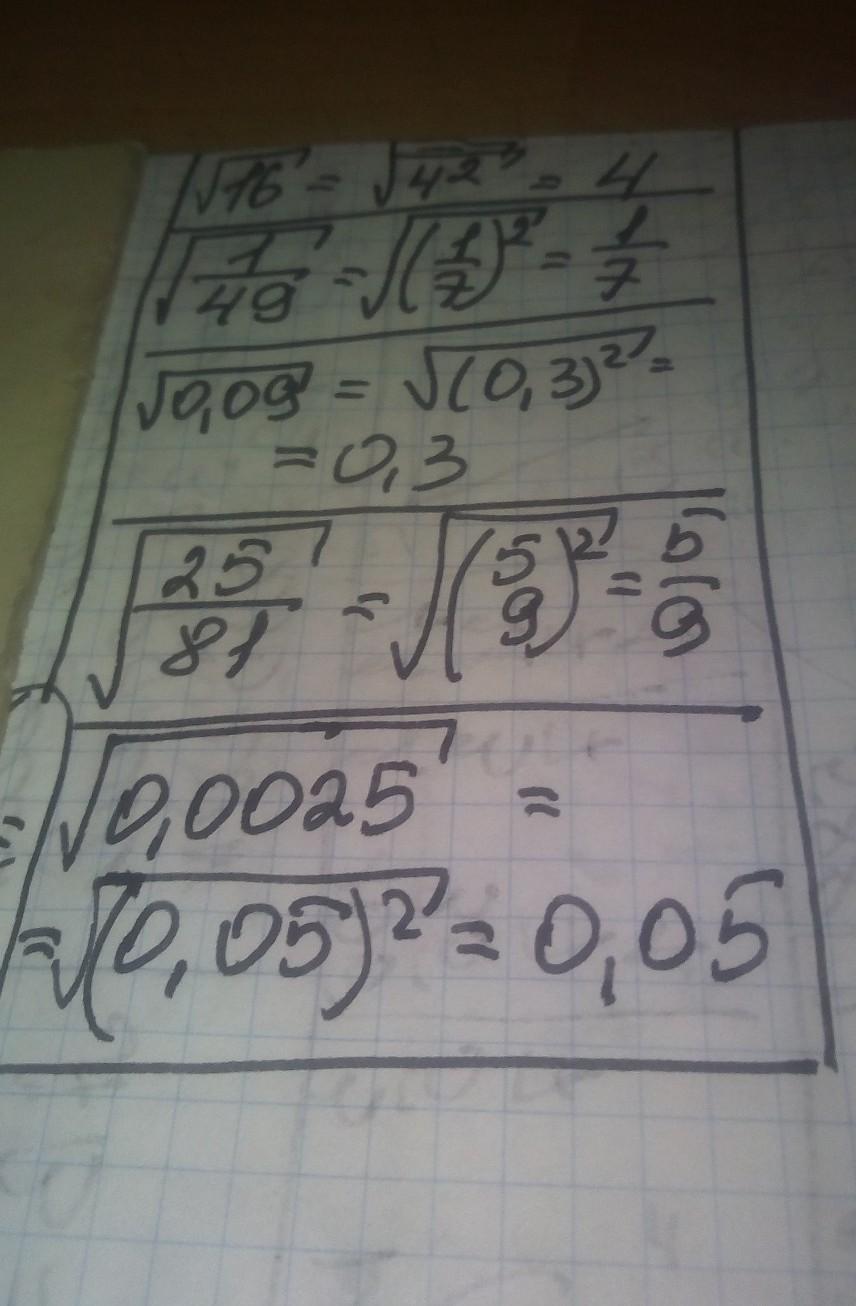 √16 = √4² = 4
√(1/49) = √(1/7)² = 1/7
√0,09 = √(0,3)² =
= 0,3
√(25/81) = √(5/9)² = 5/9
√0,0025 =
= √(0,05)² = 0,05